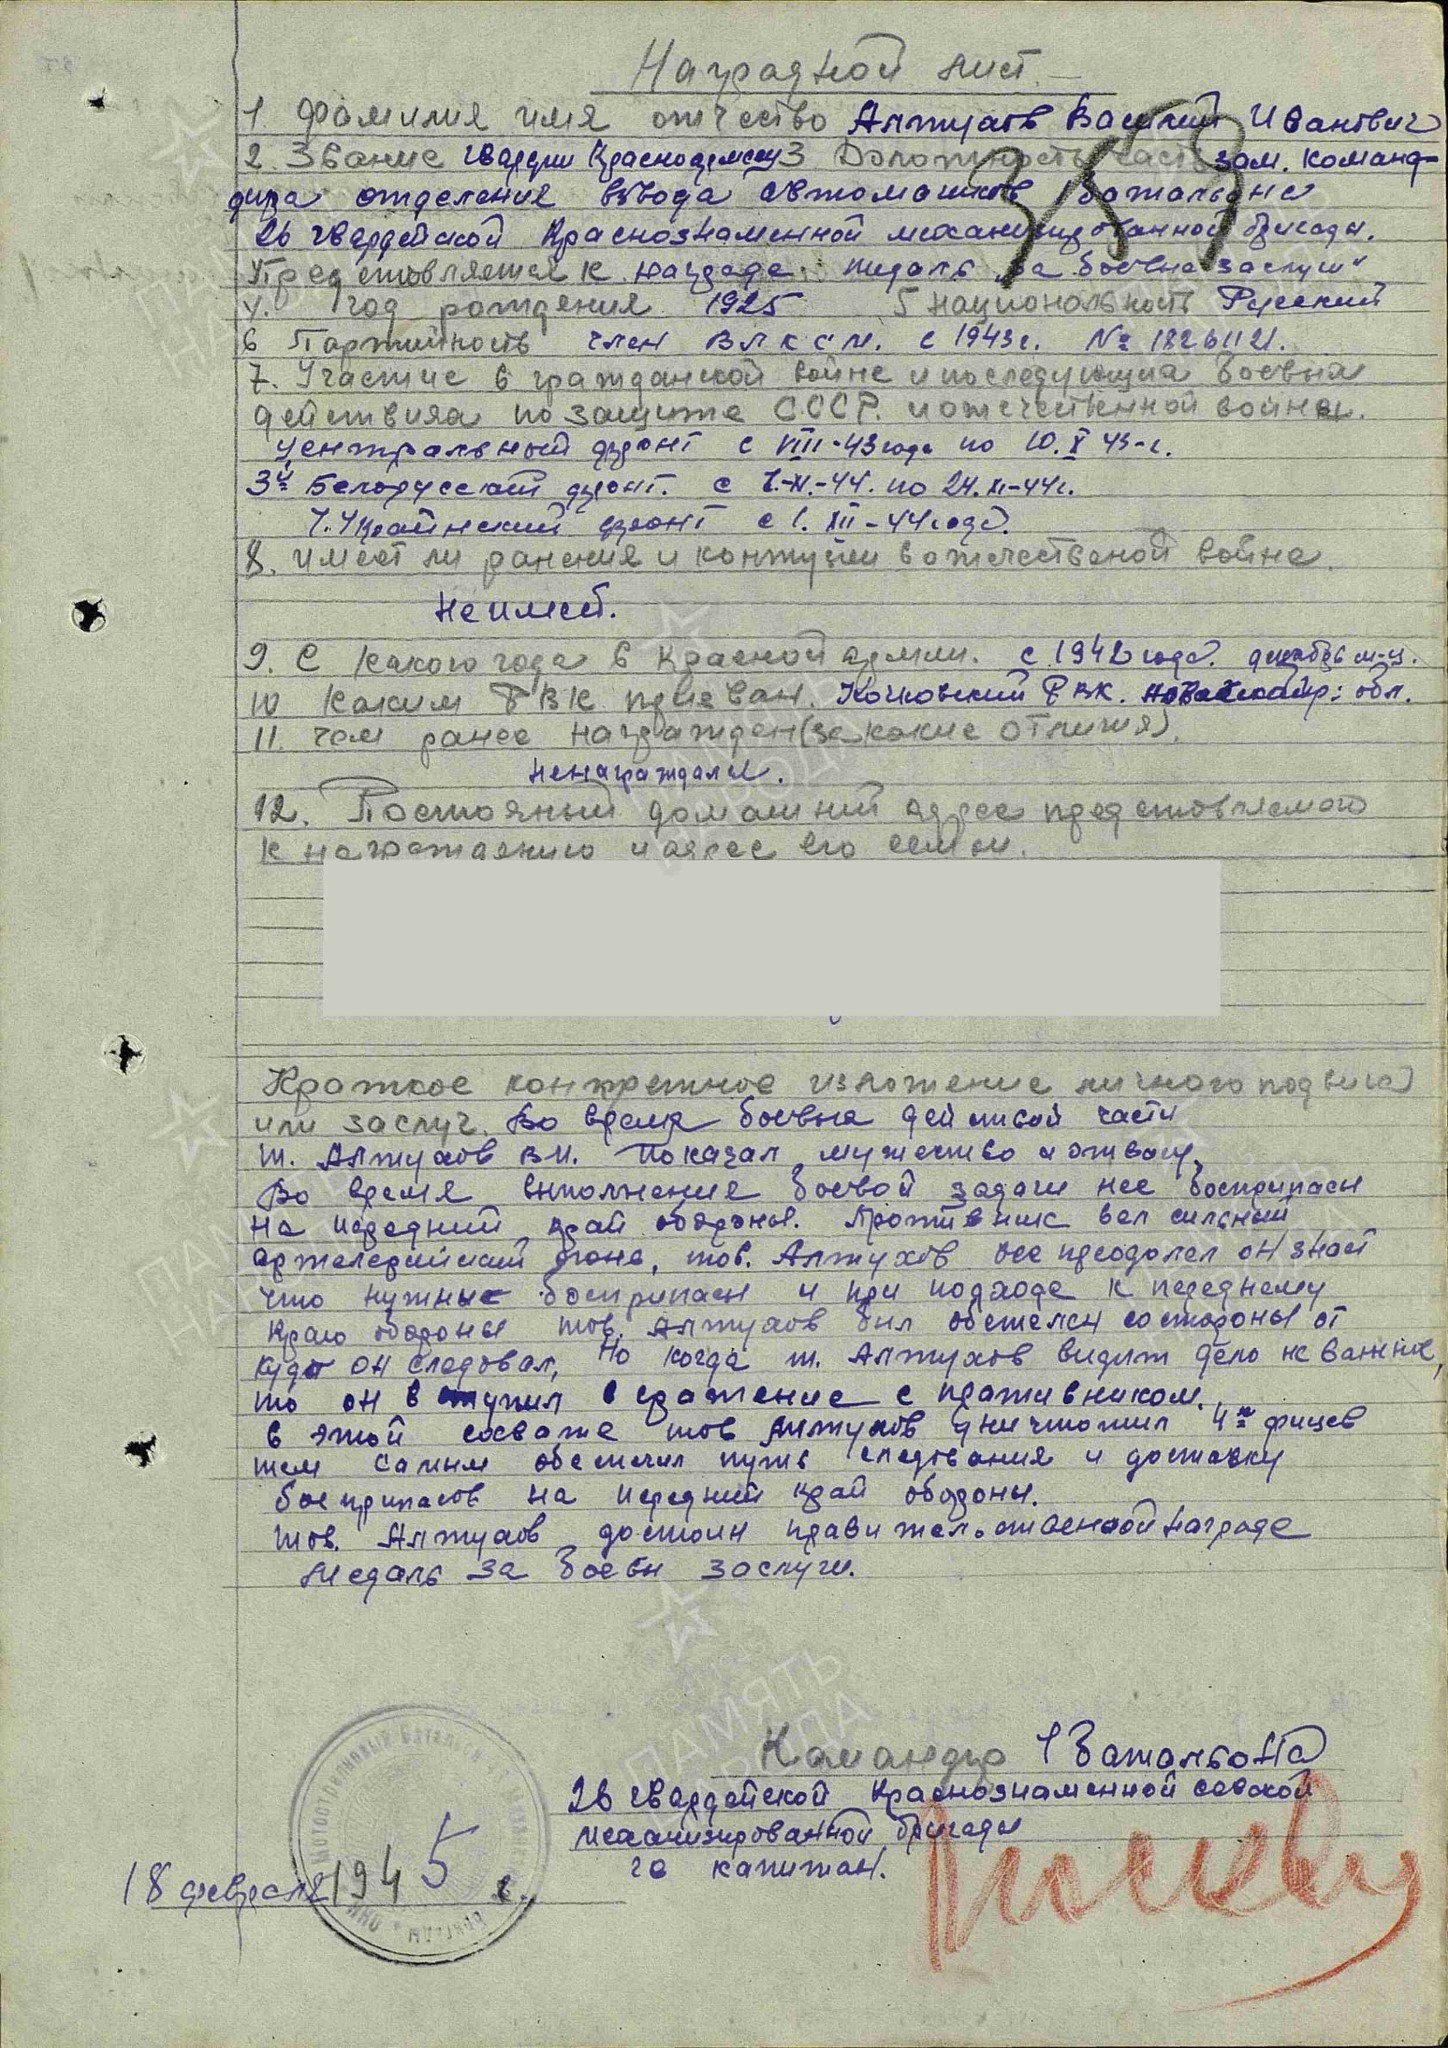 Наградной лист
1 Фамилия имя отчество Алтухов Василий Иванович
2. Звание гвардии Красноармеец 3 Должность часть зам. команд-
дира отделения взвода автоматчиков батальона
26 гвардейской Краснознаменной механизированной бригады.
Представляется к награде: медаль "за боевые заслуги"
4. год рождения 1925 5 национальность Русский
6 Партийность член ВЛКСМ. с 1943 г. № 18261121.
7. Участие в гражданской войне и последующих боевых
действиях по защите СССР. и отечественной войны.
Центральный фронт с VIII-43 года по 10.X 43-г.
3й Белорусский фронт. с 7-XI.-44. по 24.XI-44г.
2. Украинский фронт с 1. XII-44 года.
8. имеет ли ранения и контузии в отечественой войне.
Не имеет.
9. С какого года в Красной армии. с 1942 года. декабрь м-ц.
10 Каким РВК призван. Кочковский РВК. Новосибир: обл.
11. чем ранее награжден (за какие отличия).
ненаграждался.
12. Постояный домашний адрес представляемого
к награждению и адрес его семьи.
Краткое конкретное изложение личного подвига
или заслуг. Во время боевых действий части
т. Алтухов В.И. показал мужество и отвагу.
Во время выполнения боевой задачи нес боеприпасы
на передний край обороны. Противник вел сильный
артелерийский огонь, тов. Алтухов все преодолел он знает
что нужные боеприпасы и при подходе к переднему
краю обороны тов. Алтухов был обстелен состороны от
куда он следовал, Но когда т. Алтухов видит дело не важное,
то он вступил в сражение с противником.
в этой схватке тов Алтухов уничтожил 4х фрицев
тем самым обеспечил путь следования и доставку
боеприпасов на передний край обороны.
тов. Алтухов достоин правительственной награде
медаль за боевы заслуги.
359
Командир 1 Батальона
26 гвардейской Краснознаменной севской
механизированной бригады
гв капитан.
18 февраля 1945 г.
ПАМЯТЬ НАРОДА